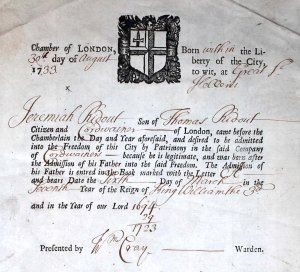 Chamber of LONDON,
30th day of August
1733
Born within the Li-
berty of the City,
to wit, at Great
x
Jeremiah Ridout Son of Thomas Ridout
Citizen and Cordwainer of London, came before the
Chamberlain the Day and Year aforesaid, and desired to be admitted
into the Freedom of this City by Patrimony in the said Company
of Cordwainers because he is legitimate, and was born after
the Admission of his Father into the said Freedom. The Admission
of his Father is entred in the Book marked with the Letter
and bears Date the Sixth Day of March in the
Seventh Year of the Reign of King William the 3d
and in the Year of our Lord 1694
29
1723
Presented by Wm Cray Warden.